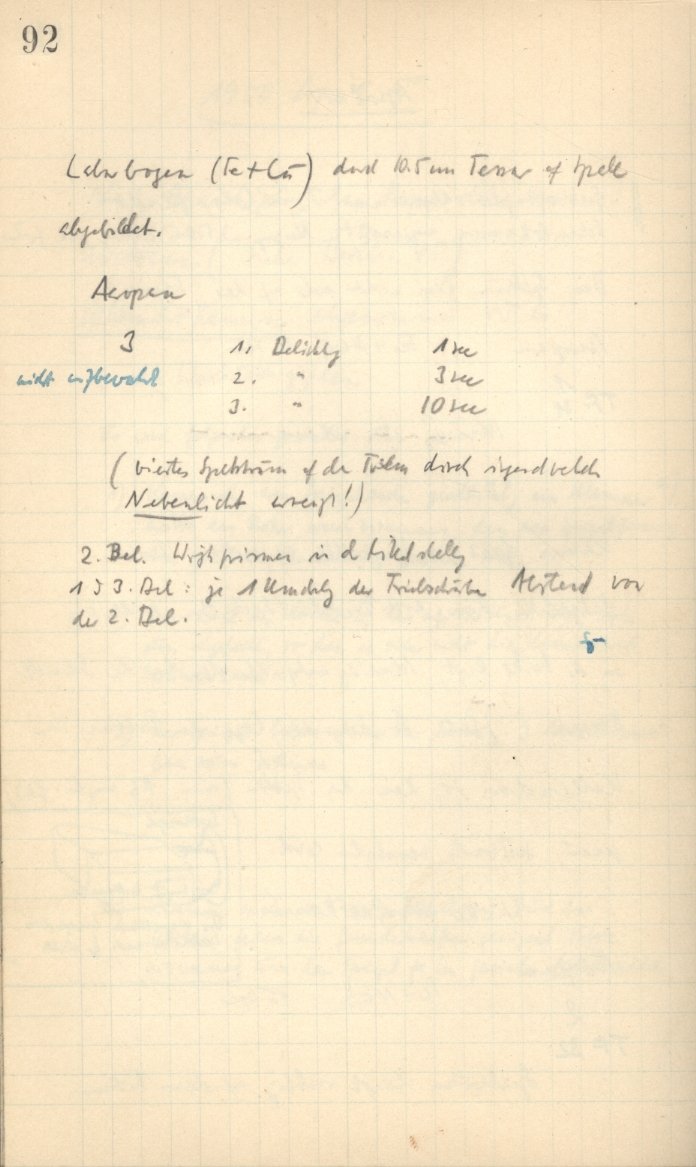 92
Laborbogen (Fe + Cu) durch 10.5 cm Tessar auf Spalt
abgebildet.
Aeropan
3 1. Belichtg 1 sec
nicht aufbewahrt 2. " 3 sec
3. " 10 sec
(viertes Spektrum auf der durch irgendwelch
Nebenlicht erzeugt!)
2. Bel. prismen in d Mittelstellg
1 & 3. Bel: je 1 Umdrehg der Triebschraube Abstand von
der 2. Bel.